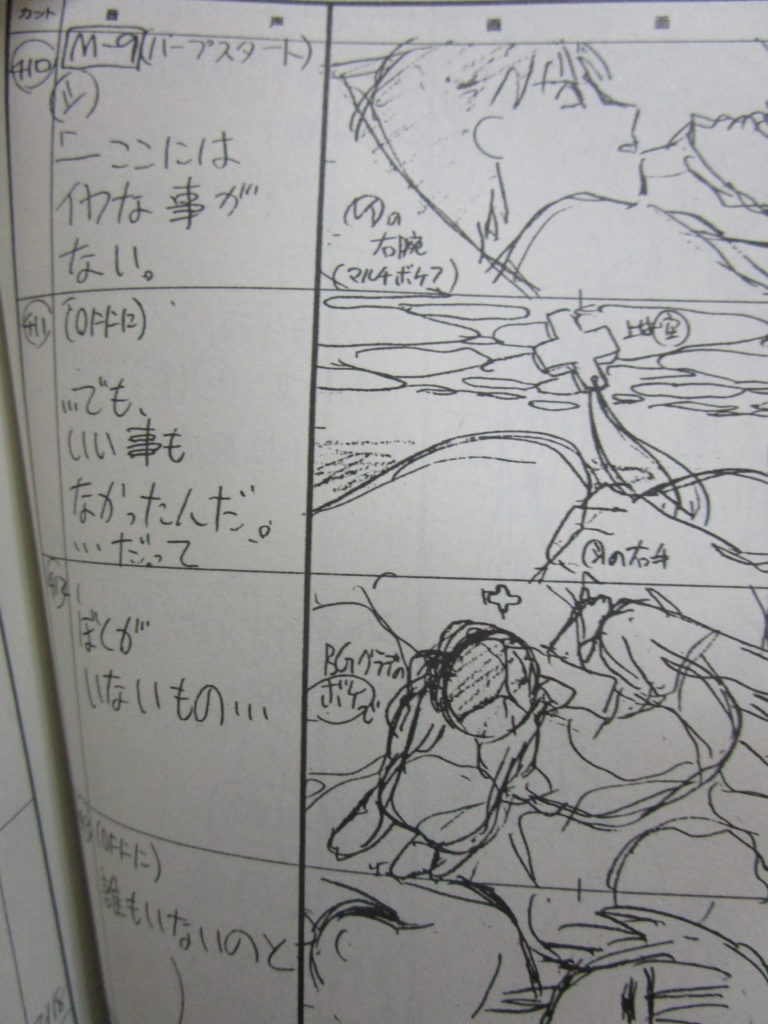 カット
音 声
画 面
410
M-9 (ハープスタート)
「ここには
イヤな事が
ない。
の
右腕
(マルチボケア)
411
(OFFに)
…でも、
いい事も
なかったんだ。
…だって
の右手
ぼくが
いないもの…
BG
ボケで
(OFFに)
誰もいないのと